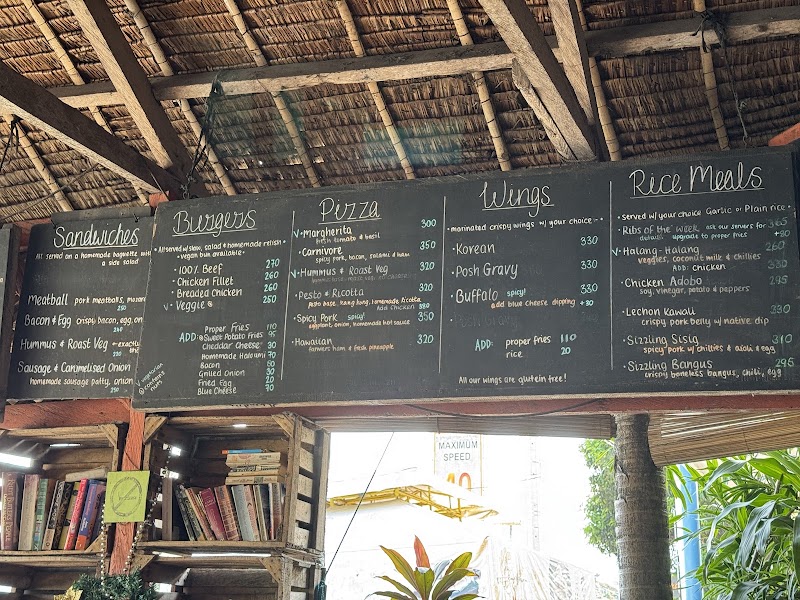 Sandwiches
All served on a homemade baguette with
a side salad
Meatball pork meatballs,
250
Bacon & Egg crispy bacon, egg,
240
Hummus & Roast Veg
Sausage & Caramelised Onion
homemade sausage patty, onion
250
Burgers
All served w/ slaw, salad & homemade relish
vegan bun available
• 100% Beef 270
• Chicken Fillet 260
• Breaded Chicken 260
V • Veggie 250
ADD:
Proper Fries 110
Sweet Potato Fries 95
Cheddar Cheese 30
Homemade Haloumi 70
Bacon 50
Grilled Onion 30
Fried Egg 20
Blue Cheese 70
V vegetarian
contains
nuts
Pizza
V • Margherita 300
fresh tomato & basil
• Carnivore 350
spicy pork, bacon, salami & ham
V • Hummus & Roast Veg 320
• Pesto & Ricotta 320
pesto base, kang kong, homemade ricotta
Add Chicken 380
• Spicy Pork spicy! 350
eggplant, onion, homemade hot sauce
• Hawaiian 320
farmers ham & fresh pineapple
Wings
marinated crispy wings w/ your choice -
• Korean 330
• Posh Gravy 330
• Buffalo spicy! 330
add blue cheese dipping +80
ADD: proper fries 110
rice 20
All our wings are gluten free!
Rice Meals
• Served w/ your choice Garlic or Plain rice
• Ribs of the week ask our servers for 365
details upgrade to proper fries +90
V • Halang - Halang 260
veggies, coconut milk & chillies
ADD: chicken 330
• Chicken Adobo 295
soy, vinegar, potato & peppers
• Lechon Kawali 330
crispy pork belly w/ native dip
• Sizzling Sisig 310
spicy pork w/ chillies & aioli & egg
• Sizzling Bangus 295
crispy boneless bangus, chilli, egg
MAXIMUM
SPEED
40